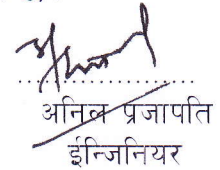 अनिल प्रजापति
ईन्जिनियर